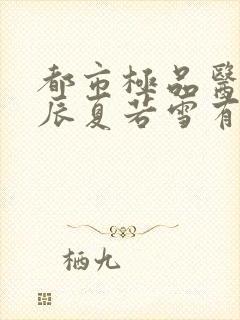 都市極品醫
辰夏若雪有
栖九